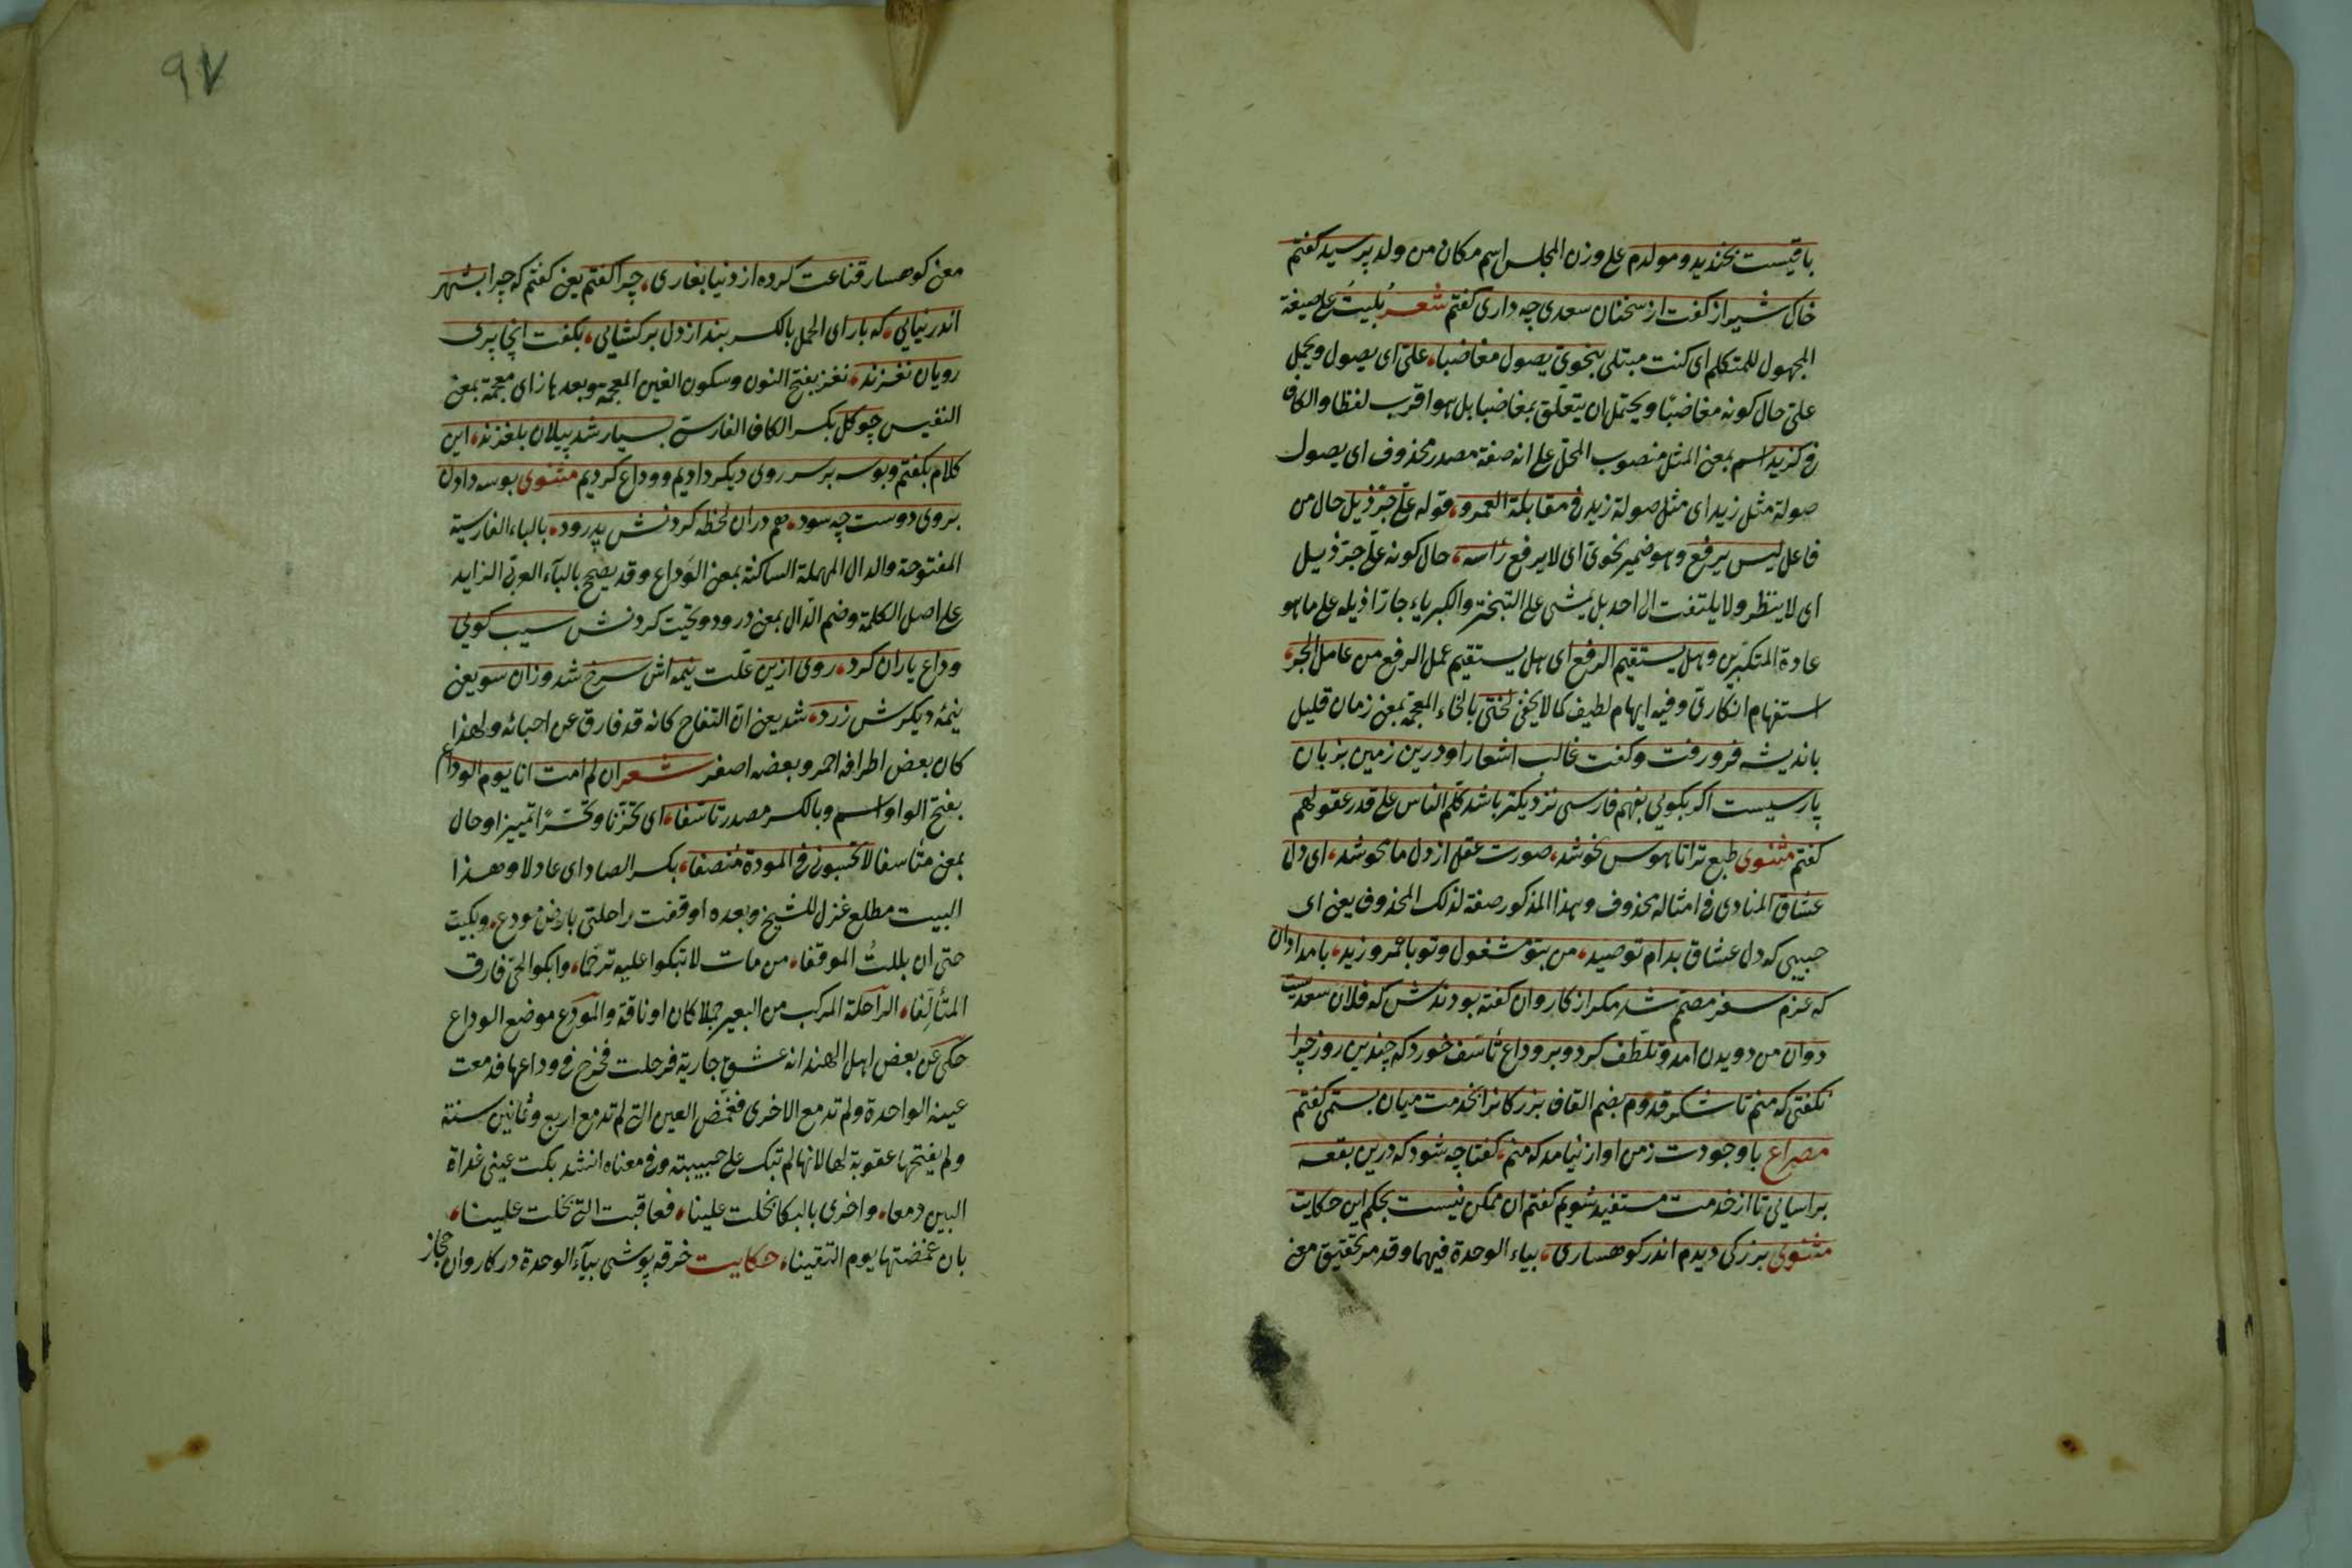 باقیست بخندید ومولدم علی وزن المجلس اسم مکان من ولد پرسید کفتم
خاک شیراز کفت از سخنان سعدی چه داری کفتم شعر بُلیتُ علی صیغة
المجهول للمتکلم ای کنت مبتلی بنحویّ یصول مغاضبا علیّ ای یصول ویحمل
علیّ حال کونه مغاضبًا ویحتمل ان یتعلّق بمغاضبا بل هو اقرب لفظا والکاف
فی کزید اسم بمعنی المثل منصوب المحلّ علی انه صفة مصدر محذوف ای یصول
صولة مثل زید ای مثل صولة زید فی مقابلة العمرو وقوله علی جرّ ذیل حال من
فاعل لیس یرفع وهو ضمیر نحوی ای لا یرفع رأسه حال کونه علی جرّ ذیل
ای لا ینظر ولا یلتفت الی احد بل یمشی علی التبختر والکبریاء جارّا ذیله علی ما هو
عادة المتکبّرین وهل یستقیم الرفع ای هل یستقیم عمل الرفع من عامل الجرّ
استفهام انکاریّ وفیه ایهام لطیف کما لا یخفی لختی بالخاء المعجمة بمعنی زمان قلیل
باندیشه فرو رفت وکفت غالب اشعار او درین زمین بزبان
پارسیست اکر بکویی بفهم فارسی نزدیکتر باشد کلّم الناس علی قدر عقولهم
کفتم مثنوی طبع ترا تا هوس نحو شد صورت عقل از دل ما محو شد ای دل
عشاق المنادی فی امثاله محذوف وهذا المذکور صفة لذلک المحذوف یعنی ای
حبیبی که دل عشاق بدام تو صید من بتو مشغول وتو با عمرو وزید بامدادان
که عزم سفر مصمّم شد مکر از کاروان کفته بودندش که فلان سعدیست
دوان من دویدن امد وتلطّف کرد وبر وداع تأسّف خورد که چندین روز چرا
نکفتی که منم تا شکر قدوم بضم القاف بزرکانرا بخدمت میان بستمی کفتم
مصراع با وجودت ز من اواز نیامد که منم کفتا چه شود که درین بقعه
براسایی تا از خدمت مستفید شویم کفتم ان ممکن نیست بحکم این حکایت
مثنوی بزرکی دیدم اندر کوهساری بیاء الوحدة فیهما وقد مر تحقیق معنی
معنی کوهسار قناعت کرده از دنیا بغاری چرا کفتم یعنی کفتم که چرا بشهر
اندر نیایی که بار ای الحمل بالکسر بند از دل برکشایی بکفت انجا پری
رویان نغزند نغز بفتح النون وسکون الغین المعجمة وبعدها زای معجمة بمعنی
النفیس چو کل بکسر الکاف الفارسیّ بسیار شد پیلان بلغزند این
کلام بکفتم وبوسه بر سر روی دیکر دادیم ووداع کردیم مثنوی بوسه دادن
بروی دوست چه سود هم دران لحظه کردنش پدرود بالباء الفارسیة
المفتوحة والدال المهملة الساکنة بمعنی الوداع وقد یصحّ بالبآء العربی الزاید
علی اصل الکلمة وضم الدّال بمعنی درود وتحیّت کردنش سیب کویی
وداع یاران کرد روی ازین علّت نیمه اش سرخ شد وزان سو یعنی
نیمهٔ دیکرش زرد شد یعنی انّ التفاح کانه قد فارق عن احبائه ولهذا
کان بعض اطرافه احمر وبعضه اصفر شعر ان لم امت انا یوم الوداع
بفتح الواو اسم وبالکسر مصدر تاسّفا ای تحزّنا وتحسّرًا تمییز او حال
بمعنی متأسفا لا تحسبونی فی المودة منصفا بکسر الصاد ای عادلا وهذا
البیت مطلع غزل للشیخ وبعده اوقفت راحلتی بارض مودع وبکیت
حتی ان بللتُ الموقفا من مات لا تبکوا علیه ترحّما وابکوا لحیّ فارق
المتألّفا الراحلة المرکب من البعیر جملا کان او ناقة والمودّع موضع الوداع
حکی عن بعض اهل الهند انه عشق جاریة فرحلت فخرج فی وداعها فدمعت
عینه الواحدة ولم تدمع الاخری فغمّض العین التی لم تدمع اربع وثمانین سنة
ولم یفتحها عقوبة لها لانها لم تبک علی حبیبته وفی معناه انشد بکت عینی غداة
البین دمعا واخری بالبکا بخلت علینا فعاقبت التی بخلت علینا
بان غمضتها یوم التقینا حکایت خرقه پوشی بیآء الوحدة در کاروان حجاز
۹۷